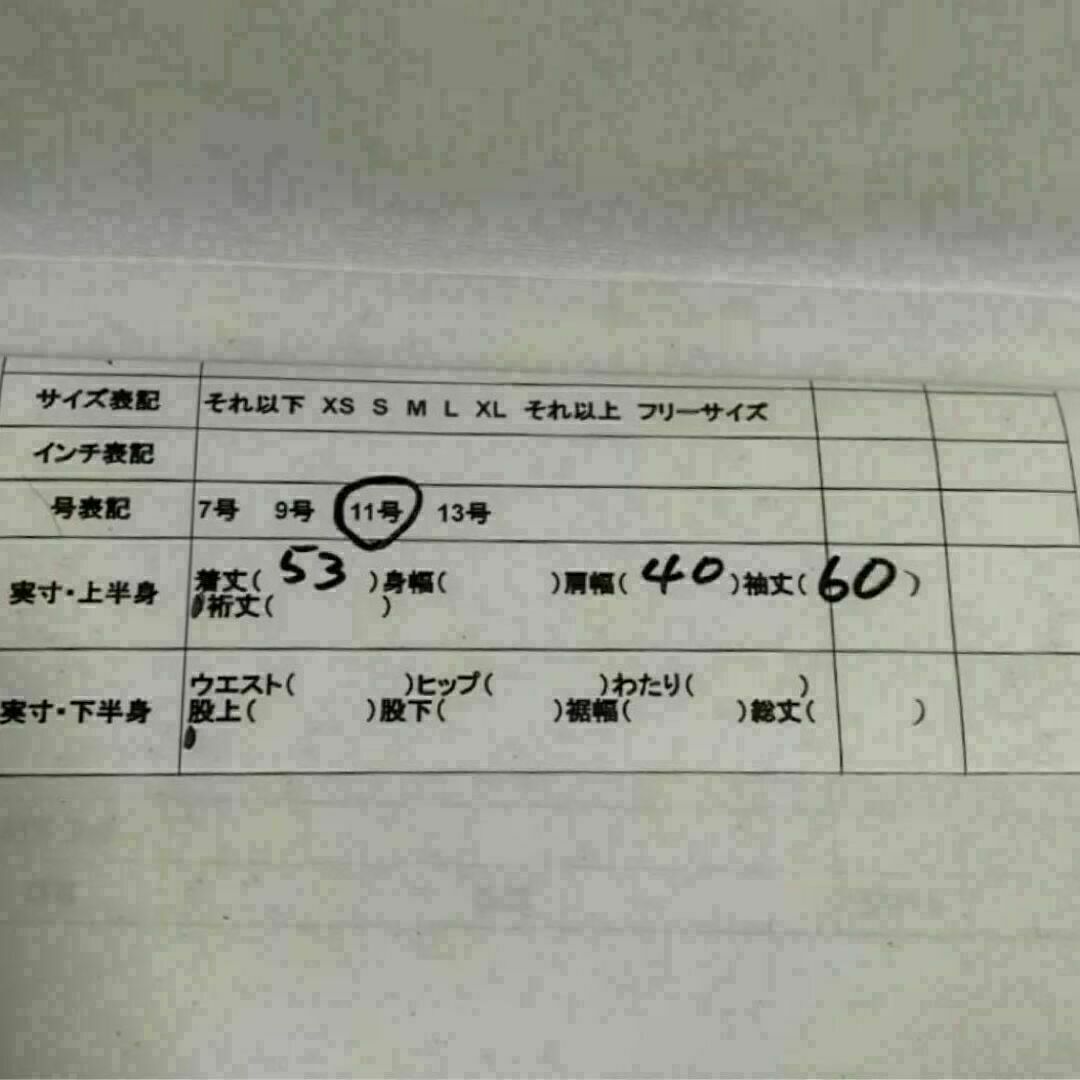 サイズ表記 それ以下 XS S M L XL それ以上 フリーサイズ
インチ表記
号表記 7号 9号 11号 13号
実寸・上半身 着丈( 53 )身幅( )肩幅( 40 )袖丈( 60 )
裄丈( )
実寸・下半身 ウエスト( )ヒップ( )わたり( )
股上( )股下( )裾幅( )総丈( )